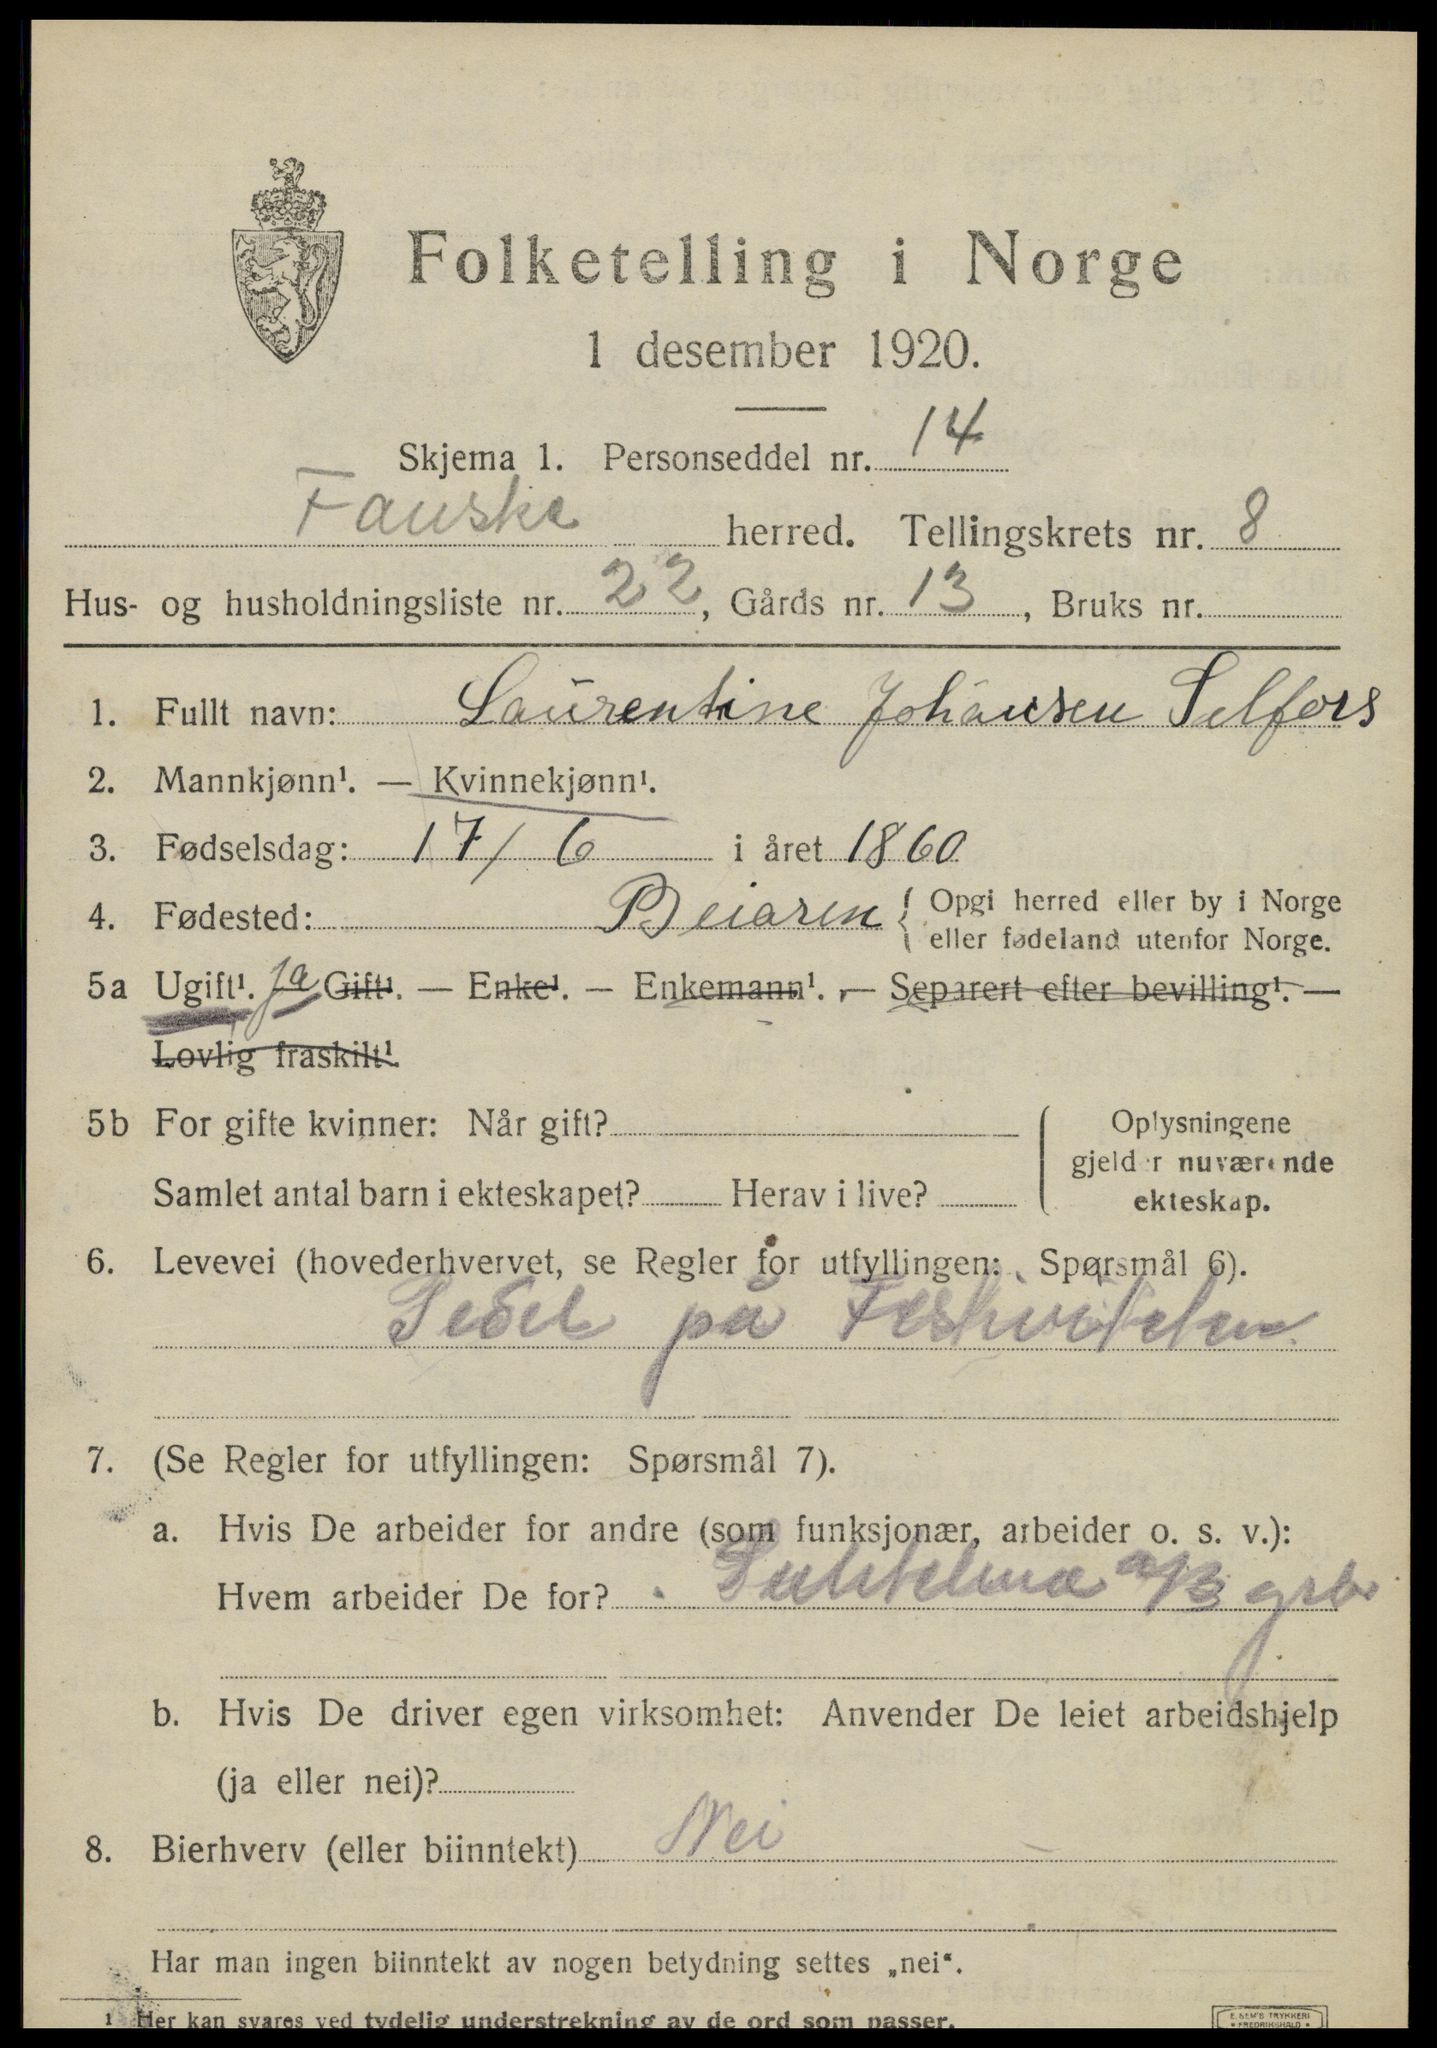 Folketelling i Norge
1 desember 1920.
Skjema 1. Personseddel nr. 14
Fauske herred. Tellingskrets nr. 8
Hus- og husholdningsliste nr. 22, Gårds nr. 13, Bruks nr.
1. Fullt navn: Laurentine Johansen Selfors
2. Mannkjønn¹. — Kvinnekjønn¹.
3. Fødselsdag: 17/6 i året 1860
4. Fødested: Beiaren { Opgi herred eller by i Norge
eller fødeland utenfor Norge.
5a Ugift¹. ja Gift¹. — Enke¹. — Enkemann¹. — Separert efter bevilling¹. —
Lovlig fraskilt¹.
5b For gifte kvinner: Når gift?
Samlet antal barn i ekteskapet? Herav i live?
Oplysningene
gjelder nuværende
ekteskap.
6. Levevei (hovederhvervet, se Regler for utfyllingen: Spørsmål 6).
på
7. (Se Regler for utfyllingen: Spørsmål 7).
a. Hvis De arbeider for andre (som funksjonær, arbeider o. s. v.):
Hvem arbeider De for? Sulitelma a/B
b. Hvis De driver egen virksomhet: Anvender De leiet arbeidshjelp
(ja eller nei)?
8. Bierhverv (eller biinntekt) Nei
Har man ingen biinntekt av nogen betydning settes „nei“.
¹ Her kan svares ved tydelig understrekning av de ord som passer.
E. SEM'S TRYKKERI
FREDRIKSHALD